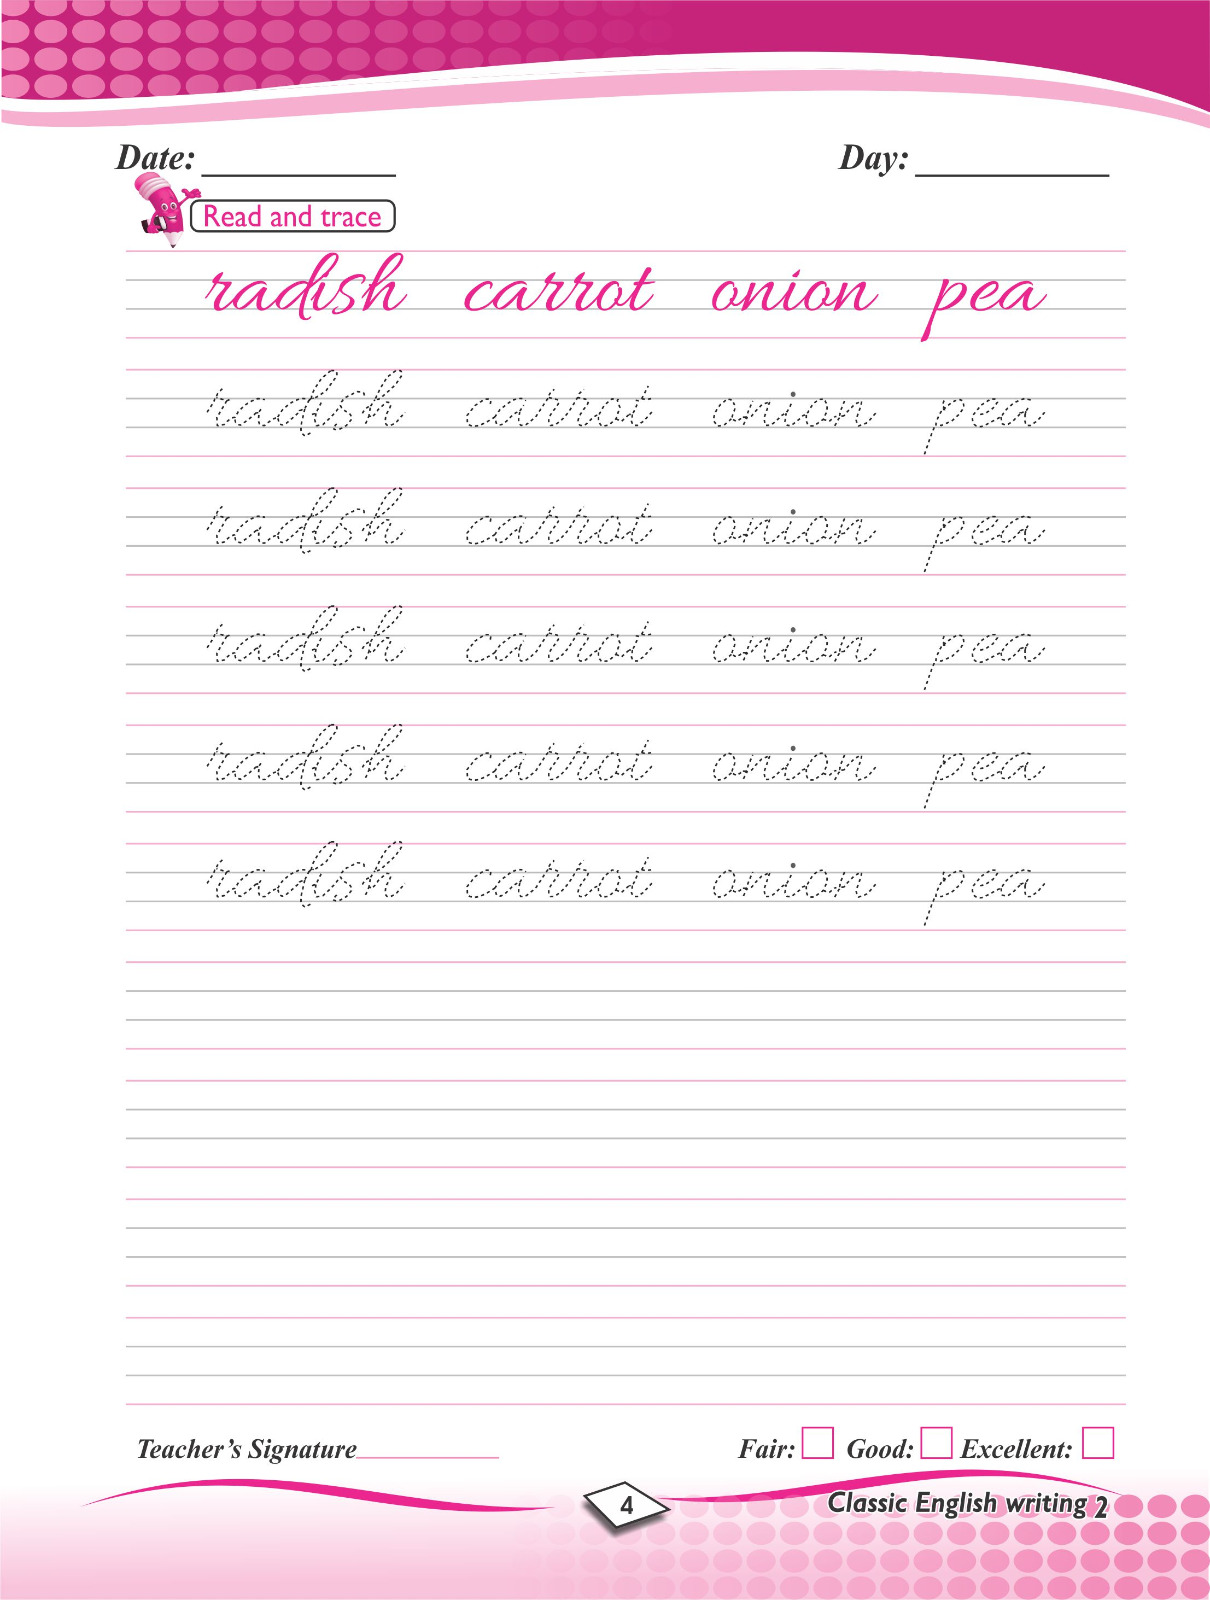 Date: ____________ Day: ____________
Read and trace
radish carrot onion pea
radish carrot onion pea
radish carrot onion pea
radish carrot onion pea
radish carrot onion pea
radish carrot onion pea
Teacher's Signature__________ Fair: Good: Excellent:
4
Classic English writing 2